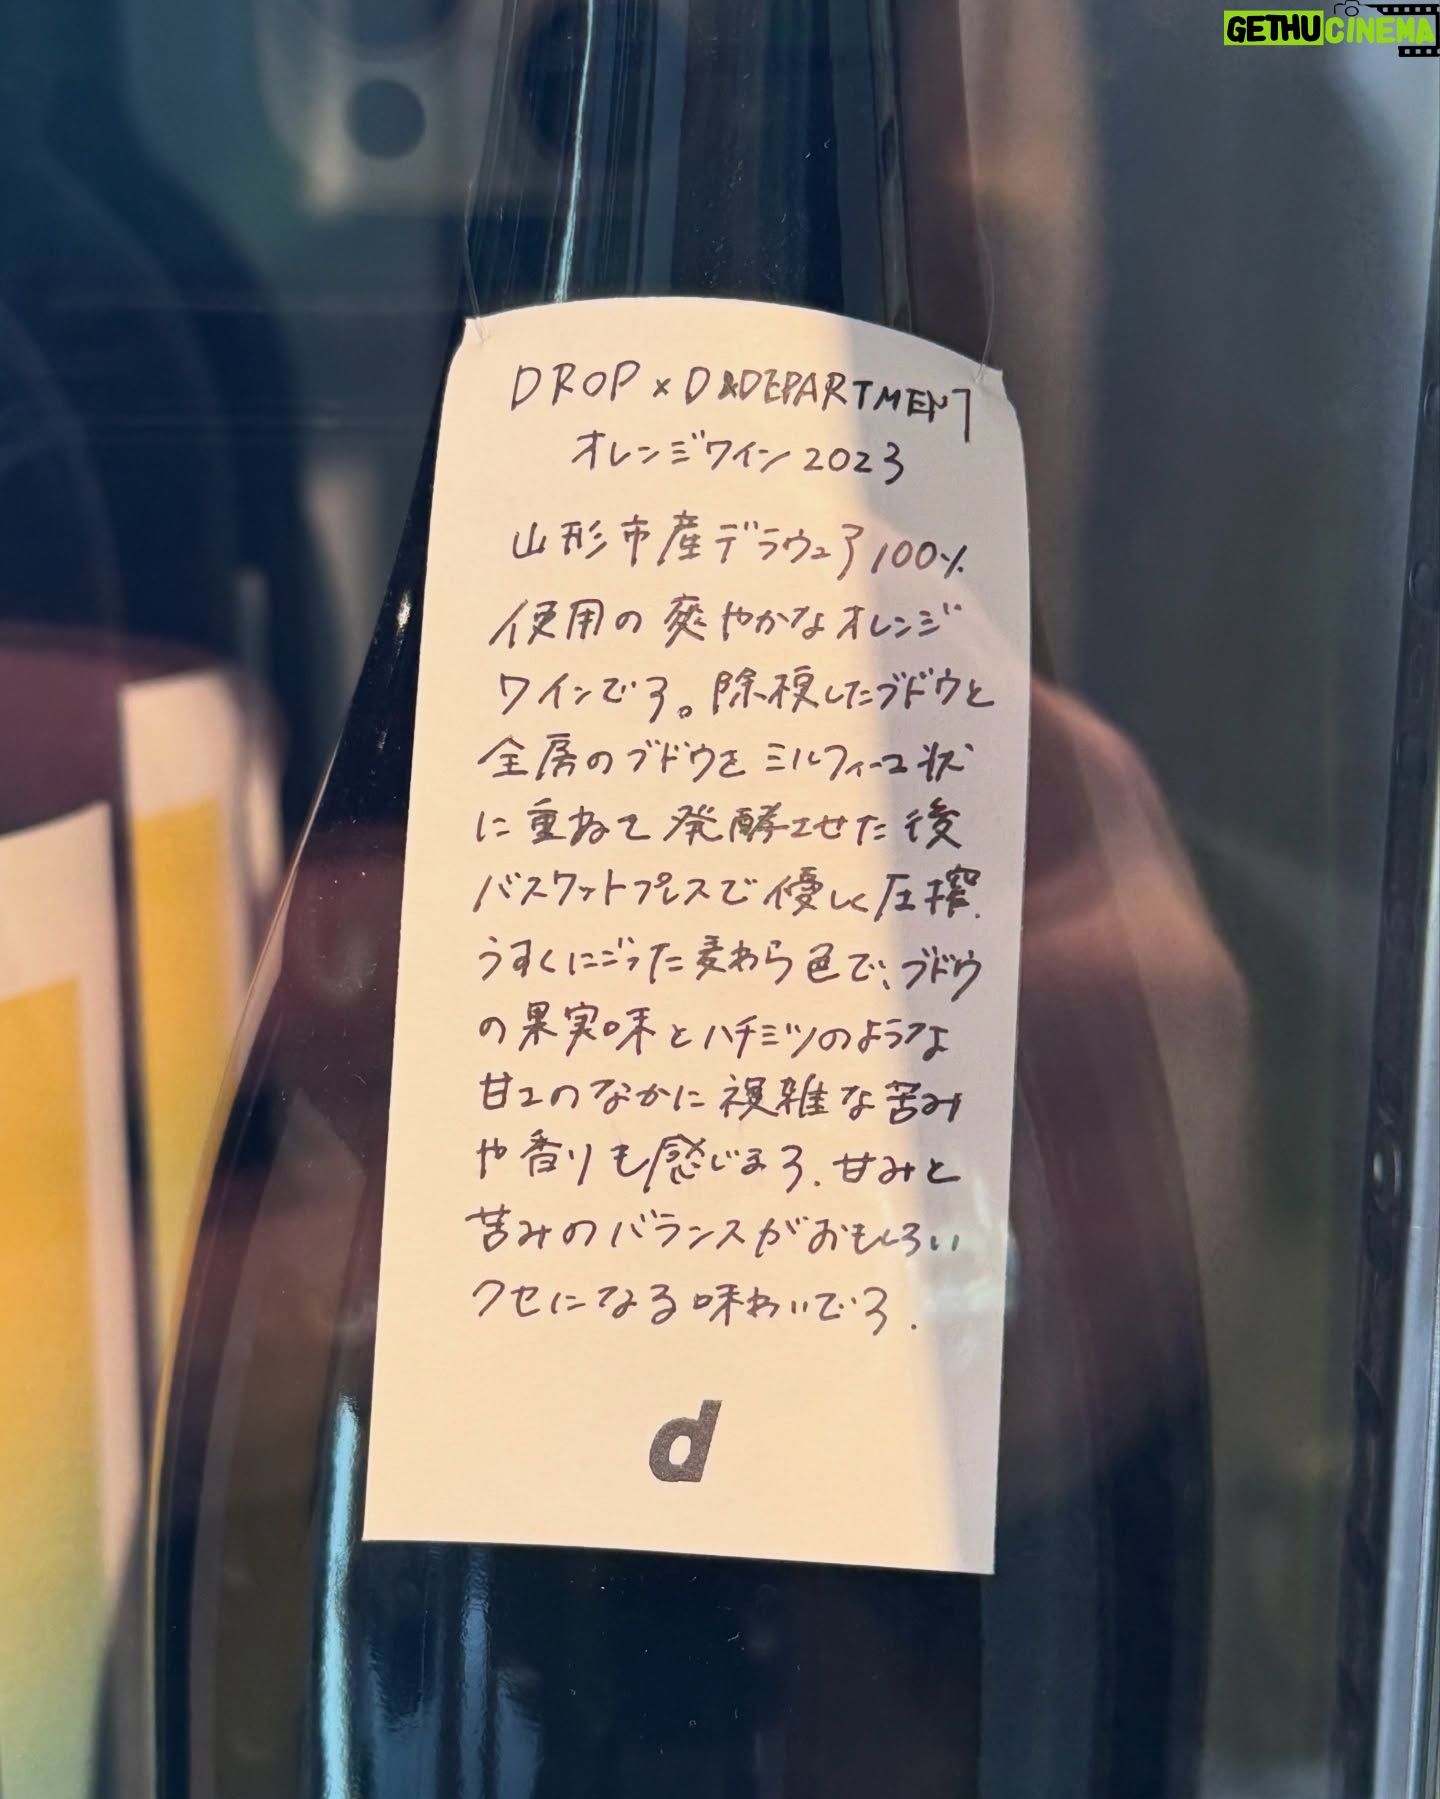 GETHUCINEMA
DROP × D&DEPARTMENT
オレンジワイン 2023
山形市産デラウェア100%
使用の爽やかなオレンジ
ワインです。除梗したブドウと
全房のブドウをミルフィーユ状
に重ねて発酵させた後
バスケットプレスで優しく圧搾.
うすくにごった麦わら色で、ブドウ
の果実味とハチミツのような
甘さのなかに複雑な苦み
や香りも感じます. 甘みと
苦みのバランスがおもしろい
クセになる味わいです.
d